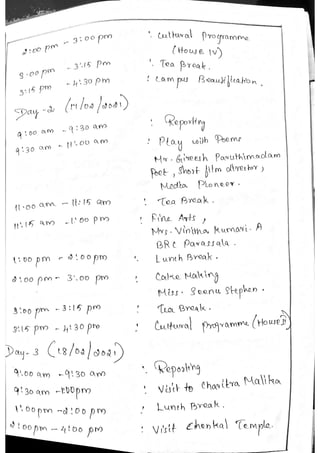 2:00 pm - 3:00 pm : Cultural programme
(House IV)
3:00 pm - 3:15 pm : Tea Break.
3:15 pm - 4:30 pm : Campus Beautification.
Day-2 (17/02/2021)
9:00 am - 9:30 am : Reporting
9:30 am - 11:00 am : Play with Poems
Mr. Gireesh Paruthimadam
Poet, Short film director,
Media Pioneer.
11:00 am - 11:15 am : Tea Break.
11:15 am - 1:00 pm : Fine Arts,
Mrs. Vinitha Kumari. A
BRC Parassala.
1:00 pm - 2:00 pm : Lunch Break.
2:00 pm - 3:00 pm : Cake Making
Miss. Seenu Stephen.
3:00 pm - 3:15 pm : Tea Break.
3:15 pm - 4:30 pm : Cultural programme (House
Day-3 (18/02/2021)
9:00 am - 9:30 am : Reporting
9:30 am - 1:00 pm : Visit to Charitra Malika
1:00 pm - 2:00 pm : Lunch Break.
2:00 pm - 4:00 pm : Visit Chenkal Temple.